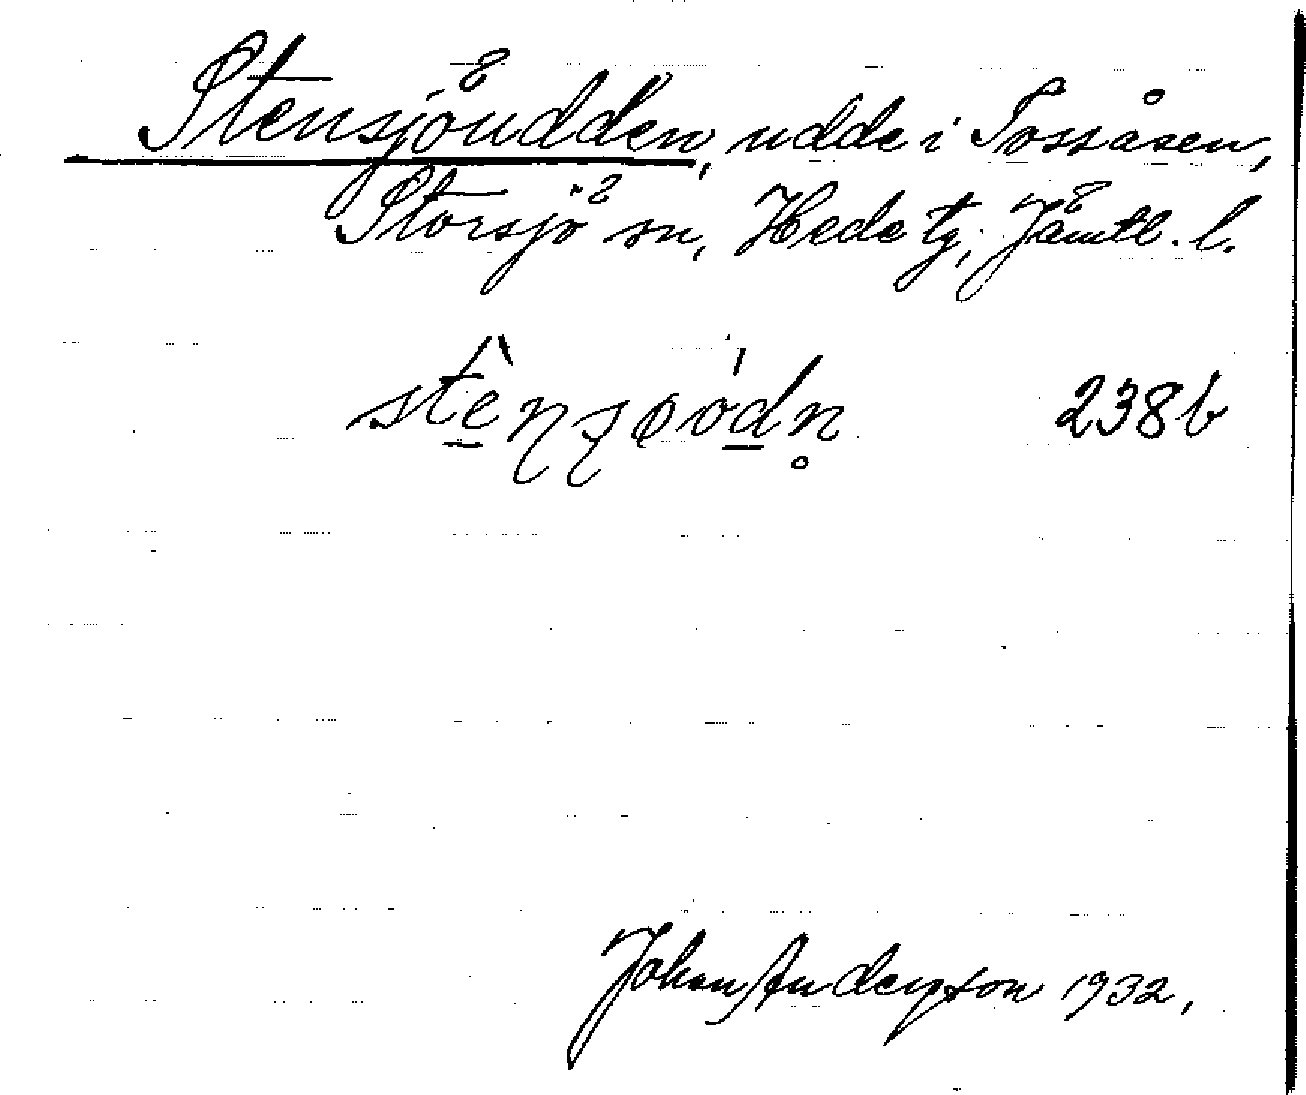 Stensjöudden, udde i Tossåsen,
Storsjö sn, Hede tg, Jämtl. l.
238 b
Johan Anderson 1932.